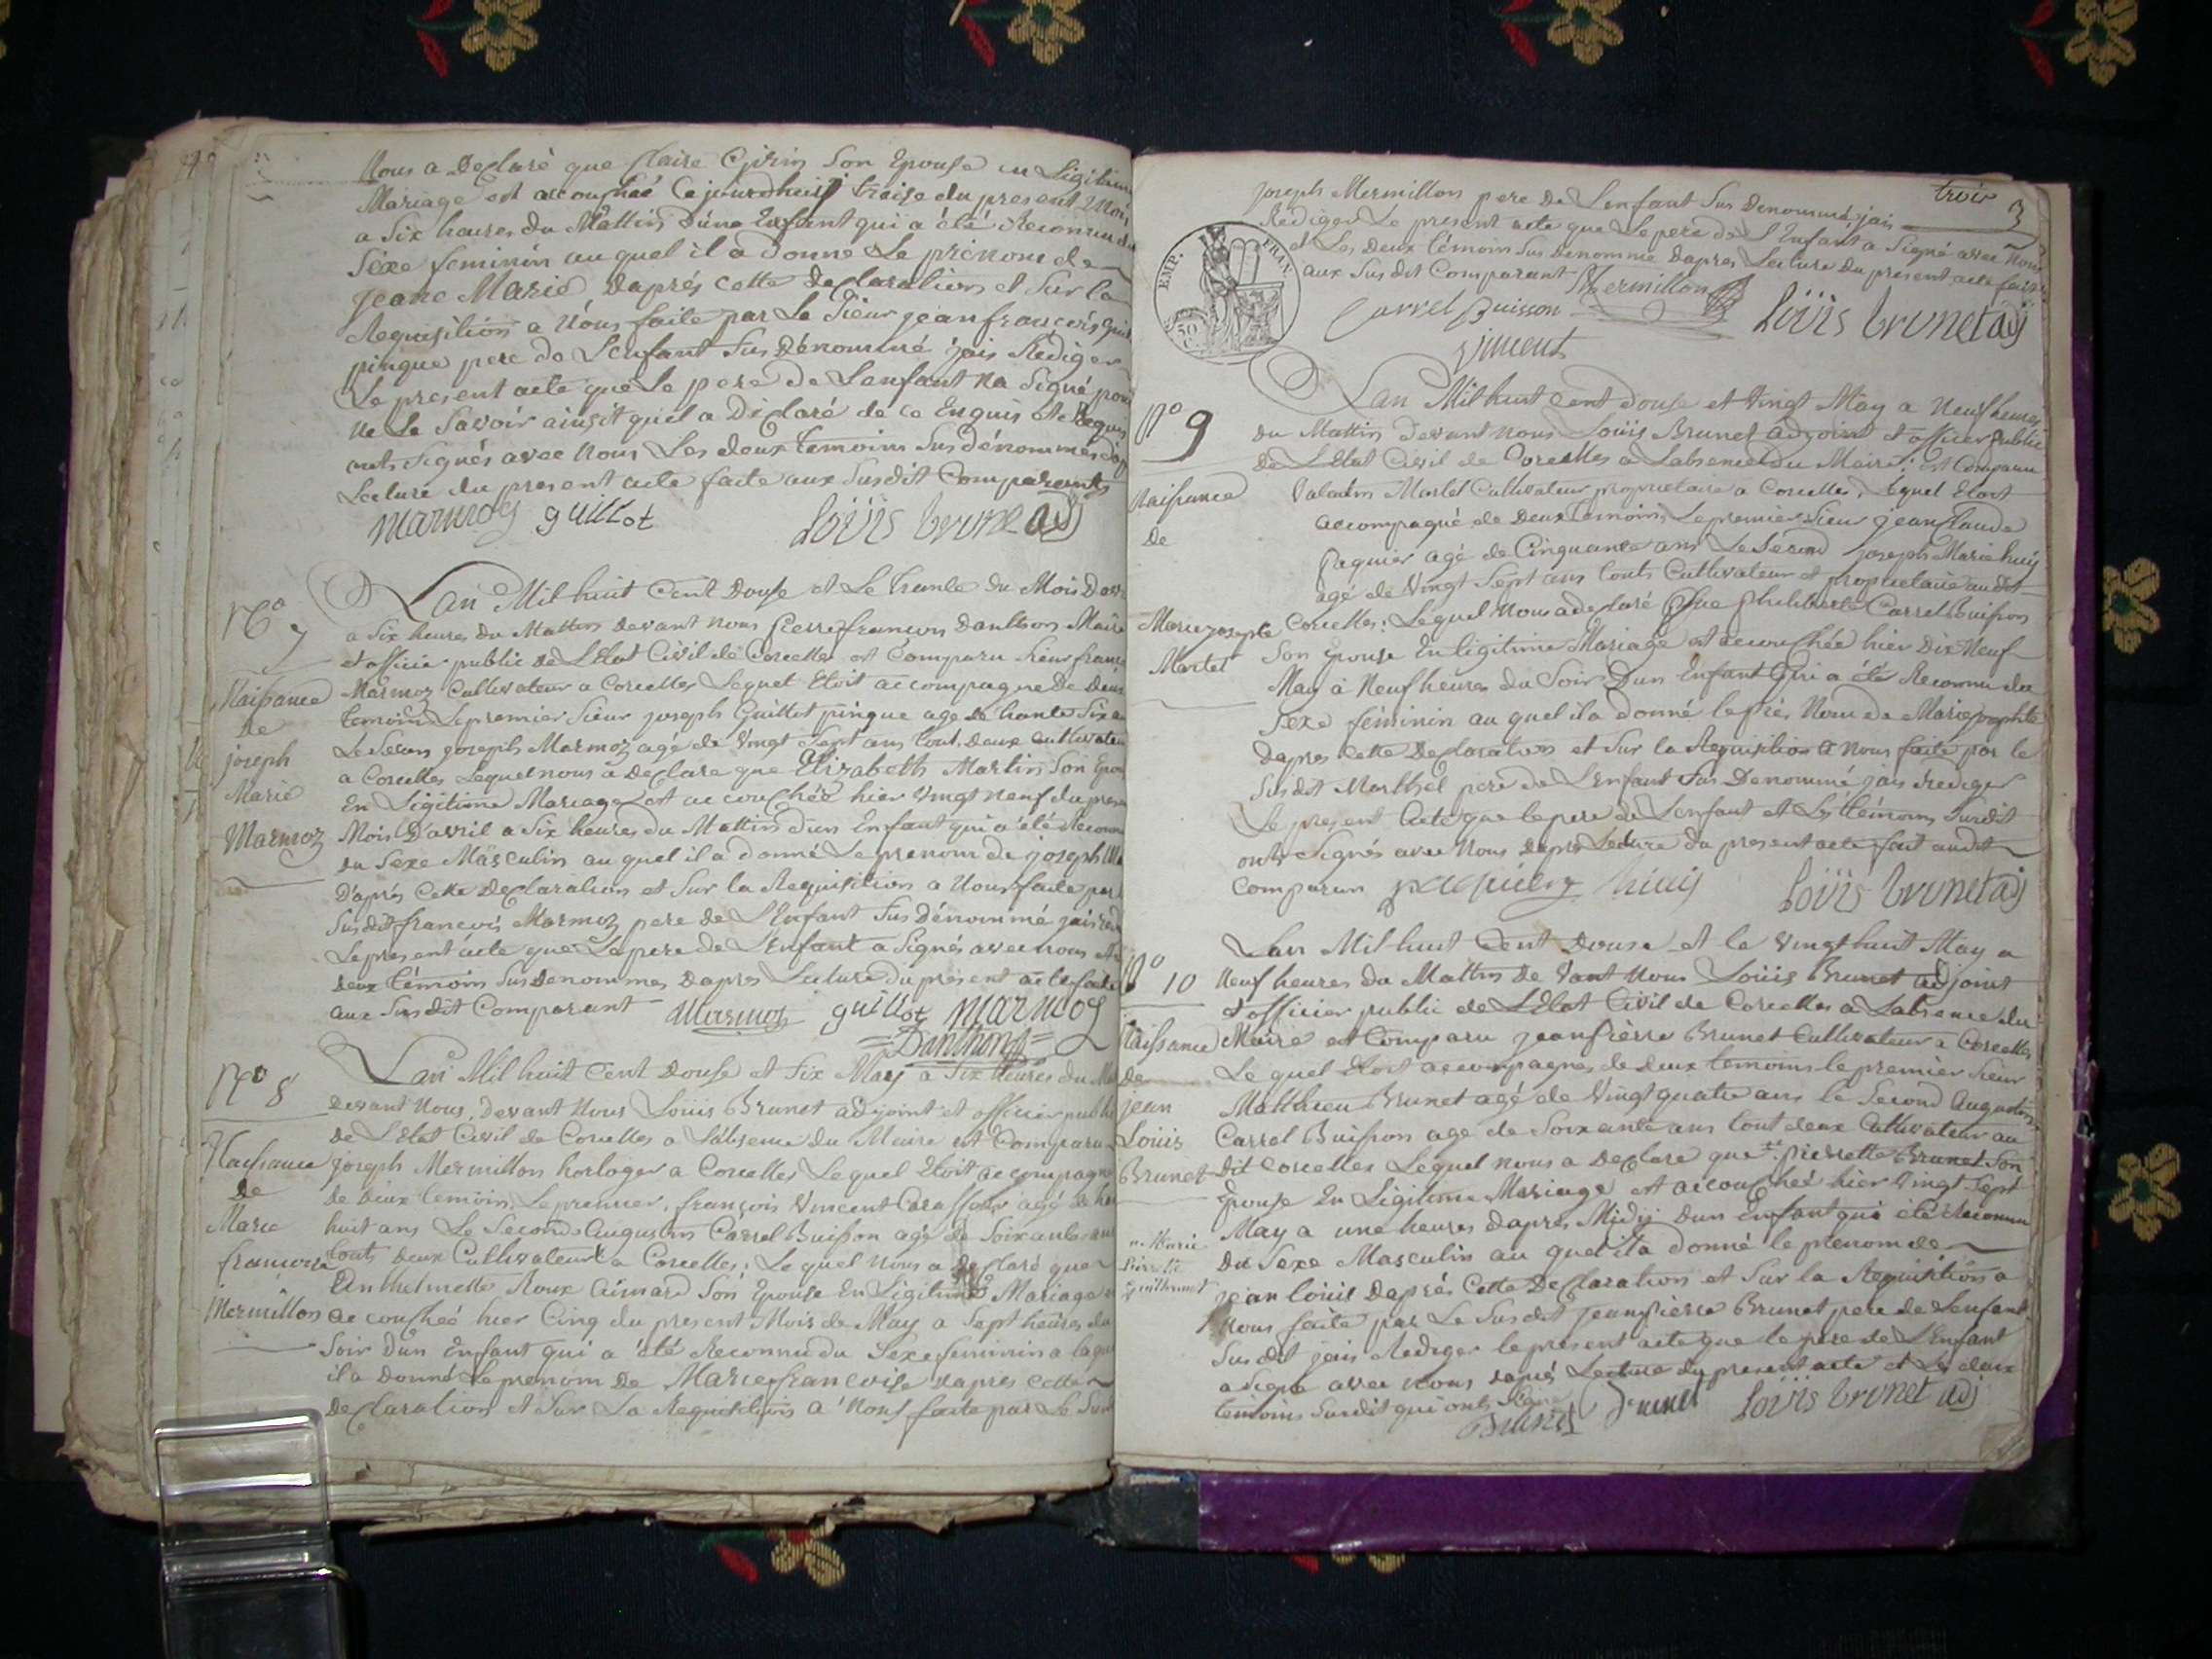 Nous a Declaré que Claire Girin Son Epouse en Legitime
Mariage est accouchéé Cejourdhuij traise du present Mois
a Six heures du Mattin D'une Enfant qui a été Reconnu du
Sexe feminin au quel il a donné Le prénom de
jeane Marie Daprés cette declaration et Sur la
Requisition a Nous faite par Le Sieur jean francois
pinque pere de Lenfant Sus Dénommé jais Rediger
Le present acte que Le pere de Lenfant na Signé pour
ne Le Savoir ainsit quil a Déclaré de ce Enquis et Requis
onts Signés avec Nous Les deux temoins Sus dénommés
Lecture du present acte faite aux Susdit Comparants
marmoz guillot Loüis brunet adj
N° 7
Naissance
de
joseph
Marie
Marmoz
Lan Mil huit Cent Douse et Le trente du Mois D
a Six heures du Mattin devant nous pierre francois Danthon Maire
et officier public de LEtat Civil de Corcelles est Comparu Sieur
Marmoz Cultivateur a Corcelles Lequel Etoit accompagné De Deux
temoins Le premier Sieur joseph Guillot pinque agé de trante Six
Le Second joseph Marmoz agé de Vingt Sept ans tout deux cultivateur
a Corcelles Lequel nous a declaré que Elizabeth Martin Son
En Ligitime Mariage est accouchéé hier Vingt neuf du
Mois D'avril a Six heures du Mattin d'un Enfant qui a été
du Sexe Masculin au quel il a donné Le prenom de joseph
D'aprés Cette Declaration et Sur la Requisition a Nous faite par
Susdit francois Marmoz pere de L'Enfant Sus Dénommé jais
Le present acte que Le pere de L'Enfant a Signés avec nous
deux témoins Susdenommes Dapres Lecture du présent acte faite
aux Sus dit Comparant Marmoz guillot marmoz
Danthon
N° 8
Naissance
de
Marie
françoise
Mermillon
Lan Mil huit Cent Douse et Six May a Six heures du
devant Nous, devant Nous Loüis Brunet adjoint et officier
de LEtat Civil de Corcelles a Labsence du Maire est Comparu
joseph Mermillon horloger a Corcelles Lequel Etoit accompagné
de deux temoins Le premier, françois Vincent agé de
huit ans Le Second Augustin Carrel Buisson agé de Soixante
touts deux Cultivateurs a Corcelles; Le quel Nous a declaré que
Anthelmette Roux Aimard Son Epouse En Legitime Mariage
accouchéé hier Cinq du present Mois de May a Sept heures du
Soir D'un Enfant qui a été Reconnu du Sexe feminin a
il a Donné Le prenom de Marie francoise Dapres Cette
Declaration et Sur La Requisition a Nous faite par Le
trois
3
joseph Mermillon pere de Lenfant Sus denommé, jais
Rediger Le present acte que Le pere de l'Enfant a Signé avec Nous
et Les deux témoins Sus denommé Dapres Lecture du present acte faite
aux Sus dit Comparant Mermillon
Carrel Buisson Loüis brunet adj
vincent
EMP. FRAN.
50 C.
N° 9
Naissance
de
Marie josepte
Martel
Lan Mil huit Cent douse et Vingt May a Neuf heures
du Mattin devant nous Loüis Brunet adjoint et officier public
de LEtat Civil de Corcelles a Labsence du Maire; est Comparu
Valentin Martel Cultivateur proprietaire a Corcelles, Lequel Etoit
accompagné de deux temoins, Le premier Sieur jean Claude
paquier agé de Cinquante ans Le Second joseph Marie huy
agé de Vingt Sept ans touts Cultivateur et proprietaire audit
Corcelles; Lequel nous a declaré que philiberte Carrel Buisson
Son Epouse En ligitime Mariage est accouchée hier Dix Neuf
May à Neuf heures du Soir Dun Enfant qui a été Reconnu du
Sexe féminin au quel il a donné le prés Nom de Marie josephte
Dapres Cette Declaration et Sur la Requisition a nous faite par le
Susdit Marthel pere de L'Enfant Sus Denommé jais rediger
Le present Acte que le pere de Lenfant et Les témoins Susdit
onts Signés avec Nous Daprés Lecture du present acte fait audit
Comparan paquier huij Loüis brunet adj
N° 10
Naissance
de
jean
Loüis
Brunet
Lan Mil huit Cent Douse et le Vingt huit May a
Neuf heures du Mattin de Vant Nous Loüis Brunet adjoint
et officier public de LEtat Civil de Corcelles a Labsence du
Maire est Comparu jean pierre Brunet Cultivateur a Corcelles
Le quel Etoit accompagnés de deux temoins le premier Sieur
Matthieu Brunet agé de Vingt quatre ans le Second Augustin
Carrel Buisson agé de Soixante ans tout deux Cultivateur au
dit Corcelles Lequel nous a declaré que pierrette Brunet Son
Epouse En Légitime Mariage est accouchéé hier Vingt Sept
May a une heures dapres Midij Dun Enfant qui été Reconnu
Du Sexe Masculin au quel il a donné le prenom de
jean louis Daprés Cette Declaration et Sur la Requisition a
Nous faite par Le Susdit jean pierre Brunet pere de Lenfant
Sus dit jais Rediger le present acte que le pere de L'Enfant
a Signé avec nous daprés Lecture du present acte et Les deux
temoins Susdit qui onts Signé
Brunet Brunet Loüis brunet adj
Marie
Pierrette